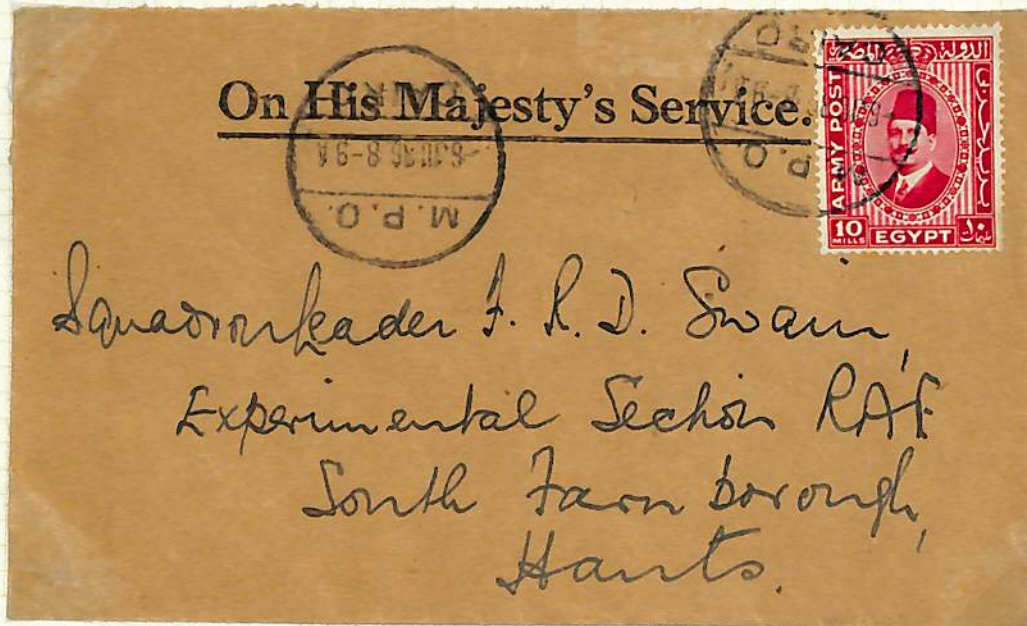 On His Majesty's Service.
M.P.O.
6.III.36.8-9A
CAIRO
M.P.O.
CAIRO
الدولة المصرية
ARMY POST
10
MILLS
EGYPT
١٠
Squadron Leader F. R. D. Swain,
Experimental Section RAF
South Farnborough,
Hants.